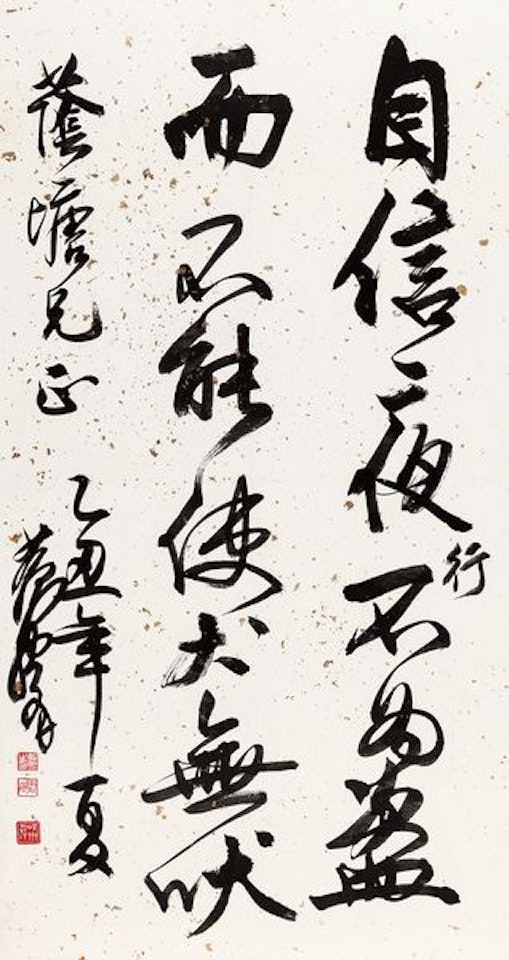 自信夜行不為盜
而不能使犬無吠
蔭塘兄正 乙丑年夏
黃